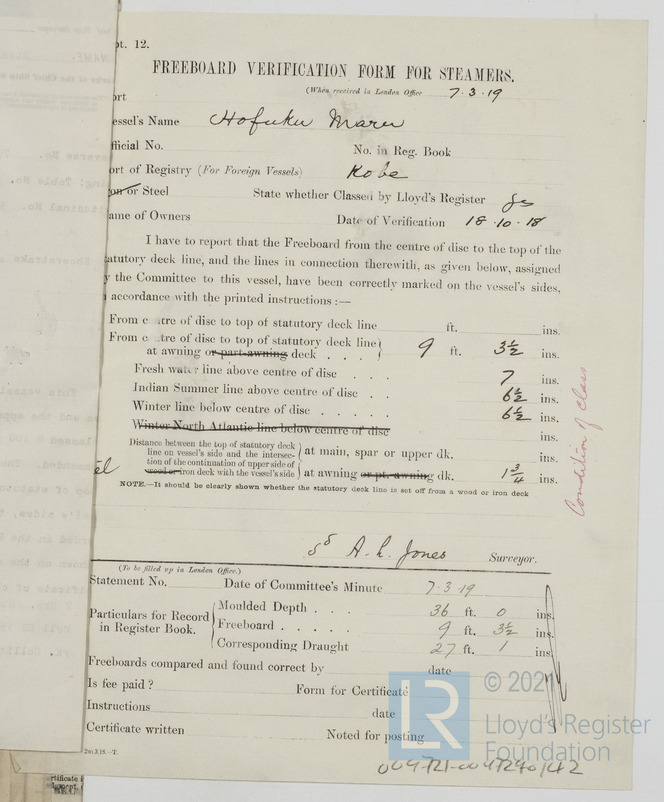 pt. 12.
FREEBOARD VERIFICATION FORM FOR STEAMERS.
(When received in London Office 7.3.19
ort
essel's Name Hofuku Maru
fficial No. No. in Reg. Book
ort of Registry (For Foreign Vessels) Kobe
on or Steel State whether Classed by Lloyd's Register Yes
ame of Owners Date of Verification 18.10.18
I have to report that the Freeboard from the centre of disc to the top of the
tatutory deck line, and the lines in connection therewith, as given below, assigned
y the Committee to this vessel, have been correctly marked on the vessel's sides,
accordance with the printed instructions :—
From centre of disc to top of statutory deck line ft. ins.
From centre of disc to top of statutory deck line
at awning or part-awning deck . . . 9 ft. 3½ ins.
Fresh water line above centre of disc . . . 7 ins.
Indian Summer line above centre of disc . . 6½ ins.
Winter line below centre of disc . . . . . 6½ ins.
Winter North Atlantic line below centre of disc ins.
Distance between the top of statutory deck
line on vessel's side and the intersec-
tion of the continuation of upper side of
wood or iron deck with the vessel's side
at main, spar or upper dk. ins.
at awning or pt. awning dk. 1¾ ins.
NOTE.—It should be clearly shown whether the statutory deck line is set off from a wood or iron deck
Condition of Class
A. L. Jones Surveyor.
(To be filled up in London Office.)
Statement No. Date of Committee's Minute 7.3.19
Particulars for Record
in Register Book.
Moulded Depth . . . 36 ft. 0 ins.
Freeboard . . . . . 9 ft. 3½ ins.
Corresponding Draught 27 ft. 1 ins.
Freeboards compared and found correct by date
Is fee paid ? Form for Certificate
Instructions date
Certificate written Noted for posting
2m.3.18.—T.
LR
Lloyd's Register
Foundation